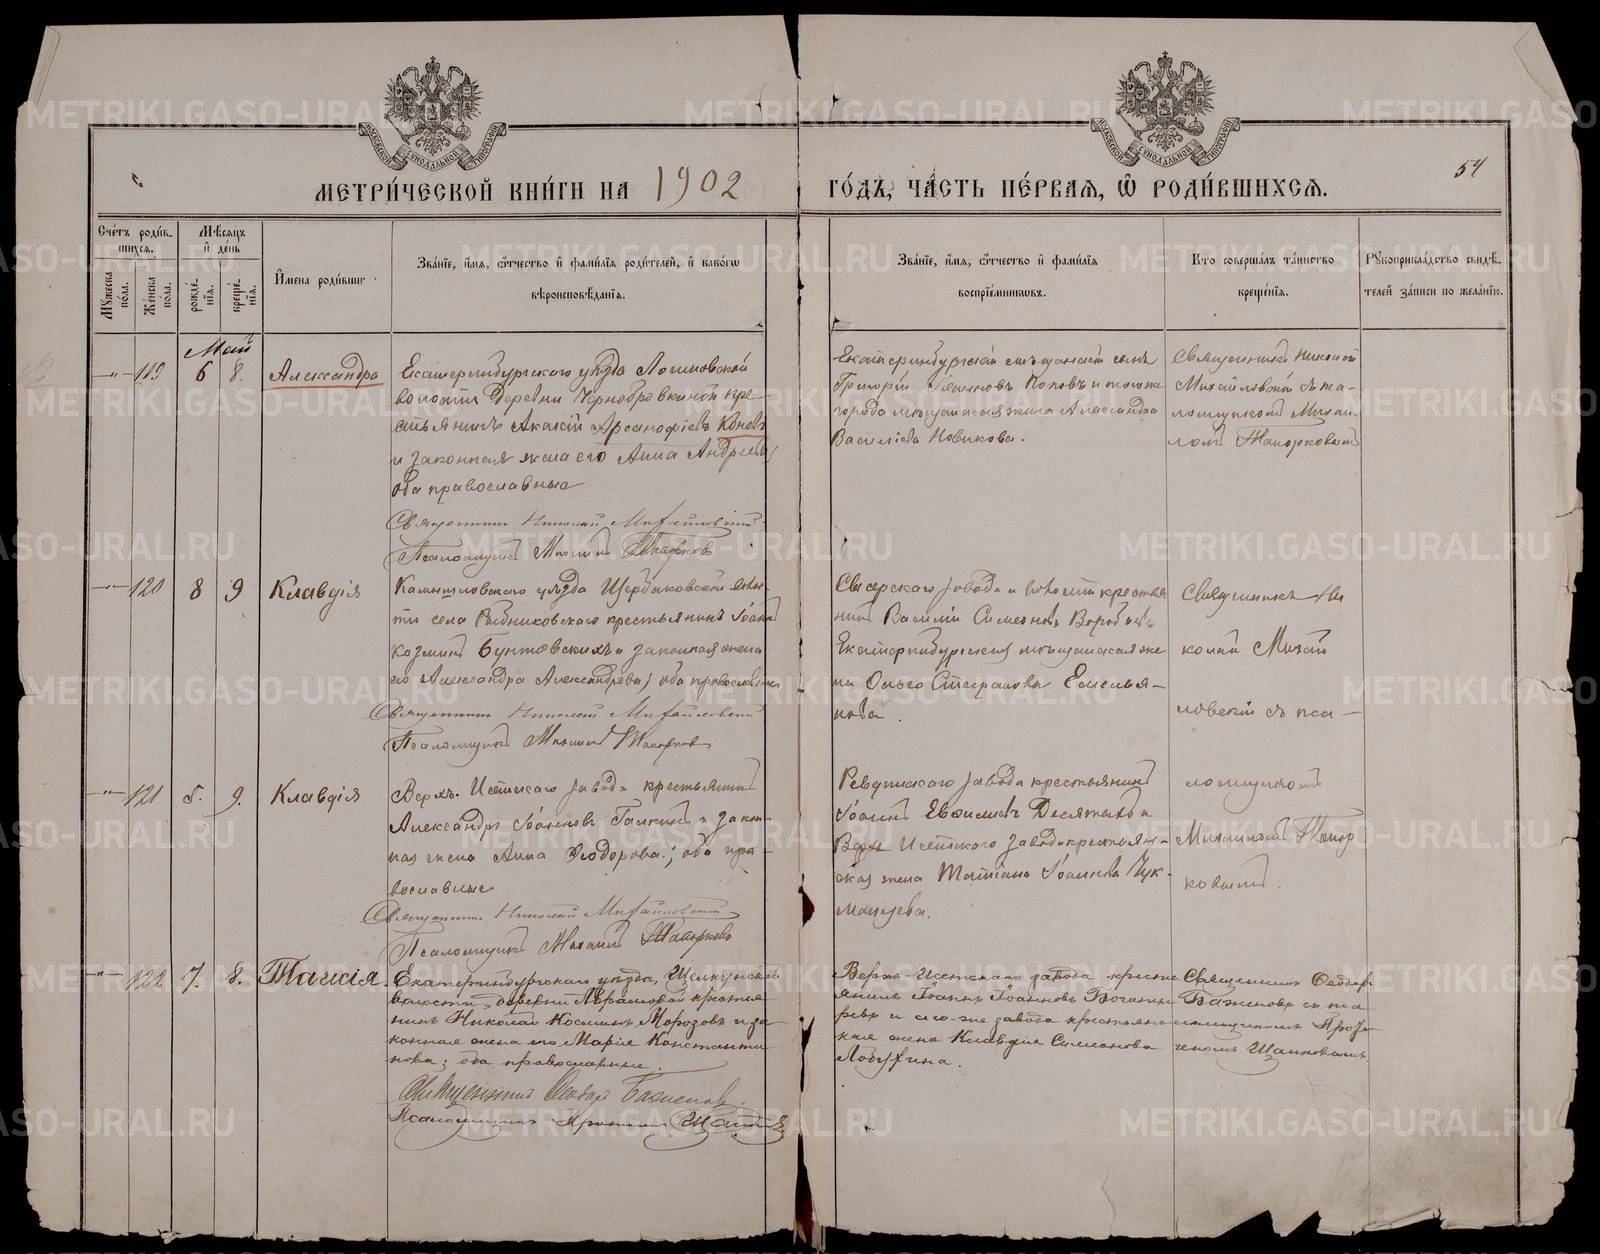 МЕТРИ́ЧЕСКОЙ КНИ́ГИ НА 1902 ГО́ДЪ, ЧА́СТЬ ПЕ́РВАЯ, Ѿ РОДИ́ВШИХСѦ.
54
Сче́тъ роди́в-
шихсѧ.
Мꙋжеска по́ла.
Же́нска по́ла.
Мѣ́сѧцъ
и҆ де́нь
рожде́-
нїѧ.
креще́-
нїѧ.
И҆́мена роди́вши
Зва́нїе, и҆́мѧ, ѻ҆́тчество и҆ фами́лїѧ роди́телей, и҆ како́гѡ
вѣроисповѣ́данїѧ.
Зва́нїе, и҆́мѧ, ѻ҆́тчество и҆ фами́лїѧ
воспрїе́мникѡвъ.
Кто соверша́лъ та́инство
креще́нїѧ.
Рꙋкоприкла́дство свидѣ́-
телей за́писи по жела́нїю.
Май
119 6 8. Александра
Екатеринбургскаго уѣзда Логиновской
волости деревни Чернобровкиной кре-
стьянинъ Акакій Арсанофіевъ Коневъ
и законная жена его Анна Андреева,
оба православные
Священникъ Николай Михайловскій
Псаломщикъ Михаилъ Топорковъ
Екатеринбургскій мѣщанскій сынъ
Григорій Іоанновъ Поповъ и тогоже
города мѣщанская жена Александра
Василіева Новикова.
Священникъ Николай
Михайловскій съ пса-
ломщикомъ Михаи-
ломъ Топорковымъ
120 8 9 Клавдія
Камышловскаго уѣзда Щербаковской волос-
ти села Рыбниковскаго крестьянинъ Іоаннъ
Козминъ Бунтовскихъ и законная жена
его Александра Александрова, оба православные
Священникъ Николай Михайловскій
Псаломщикъ Михаилъ Топорковъ
Сысерскаго завода и волости крестья
нинъ Василій Симеоновъ Воробьевъ
Екатеринбургская мѣщанская же
на Ольга Стефанова Емелья-
нова.
Священникъ Ни
колай Михай
ловскій съ пса-
121 5. 9. Клавдія
Верхъ-Исетскаго завода крестьянинъ
Александръ Іоанновъ Галкинъ и закон-
ная жена Анна Ѳеодорова; оба пра-
вославные
Священникъ Николай Михайловскій
Псаломщикъ Михаилъ Топорковъ
Ревдинскаго завода крестьянинъ
Іоаннъ Евѳиміевъ Десятковъ и
Верхъ Исетскаго завода крестьян-
ская жена Татіана Іоаннова Чук-
манцева.
ломщикомъ
Михаиломъ Топор
ковымъ.
122 7. 8. Таисія.
Екатеринбургскаго уѣзда, Щелкунской
волости, деревни Аврамовой крестья
нинъ Николай Косминъ Морозовъ и за
конная жена его Марія Константи
нова; оба православные.
Священникъ Ѳеодоръ Баженовъ.
Верхъ-Исетскаго завода кресть
янинъ Іоаннъ Іоанновъ Богаты-
ревъ и того-же завода крестьянс
кая жена Клавдія Симеонова
Лобухина.
Священникъ Ѳеодоръ
Баженовъ съ пса
ломщикомъ
METRIKI.GASO-URAL.RU